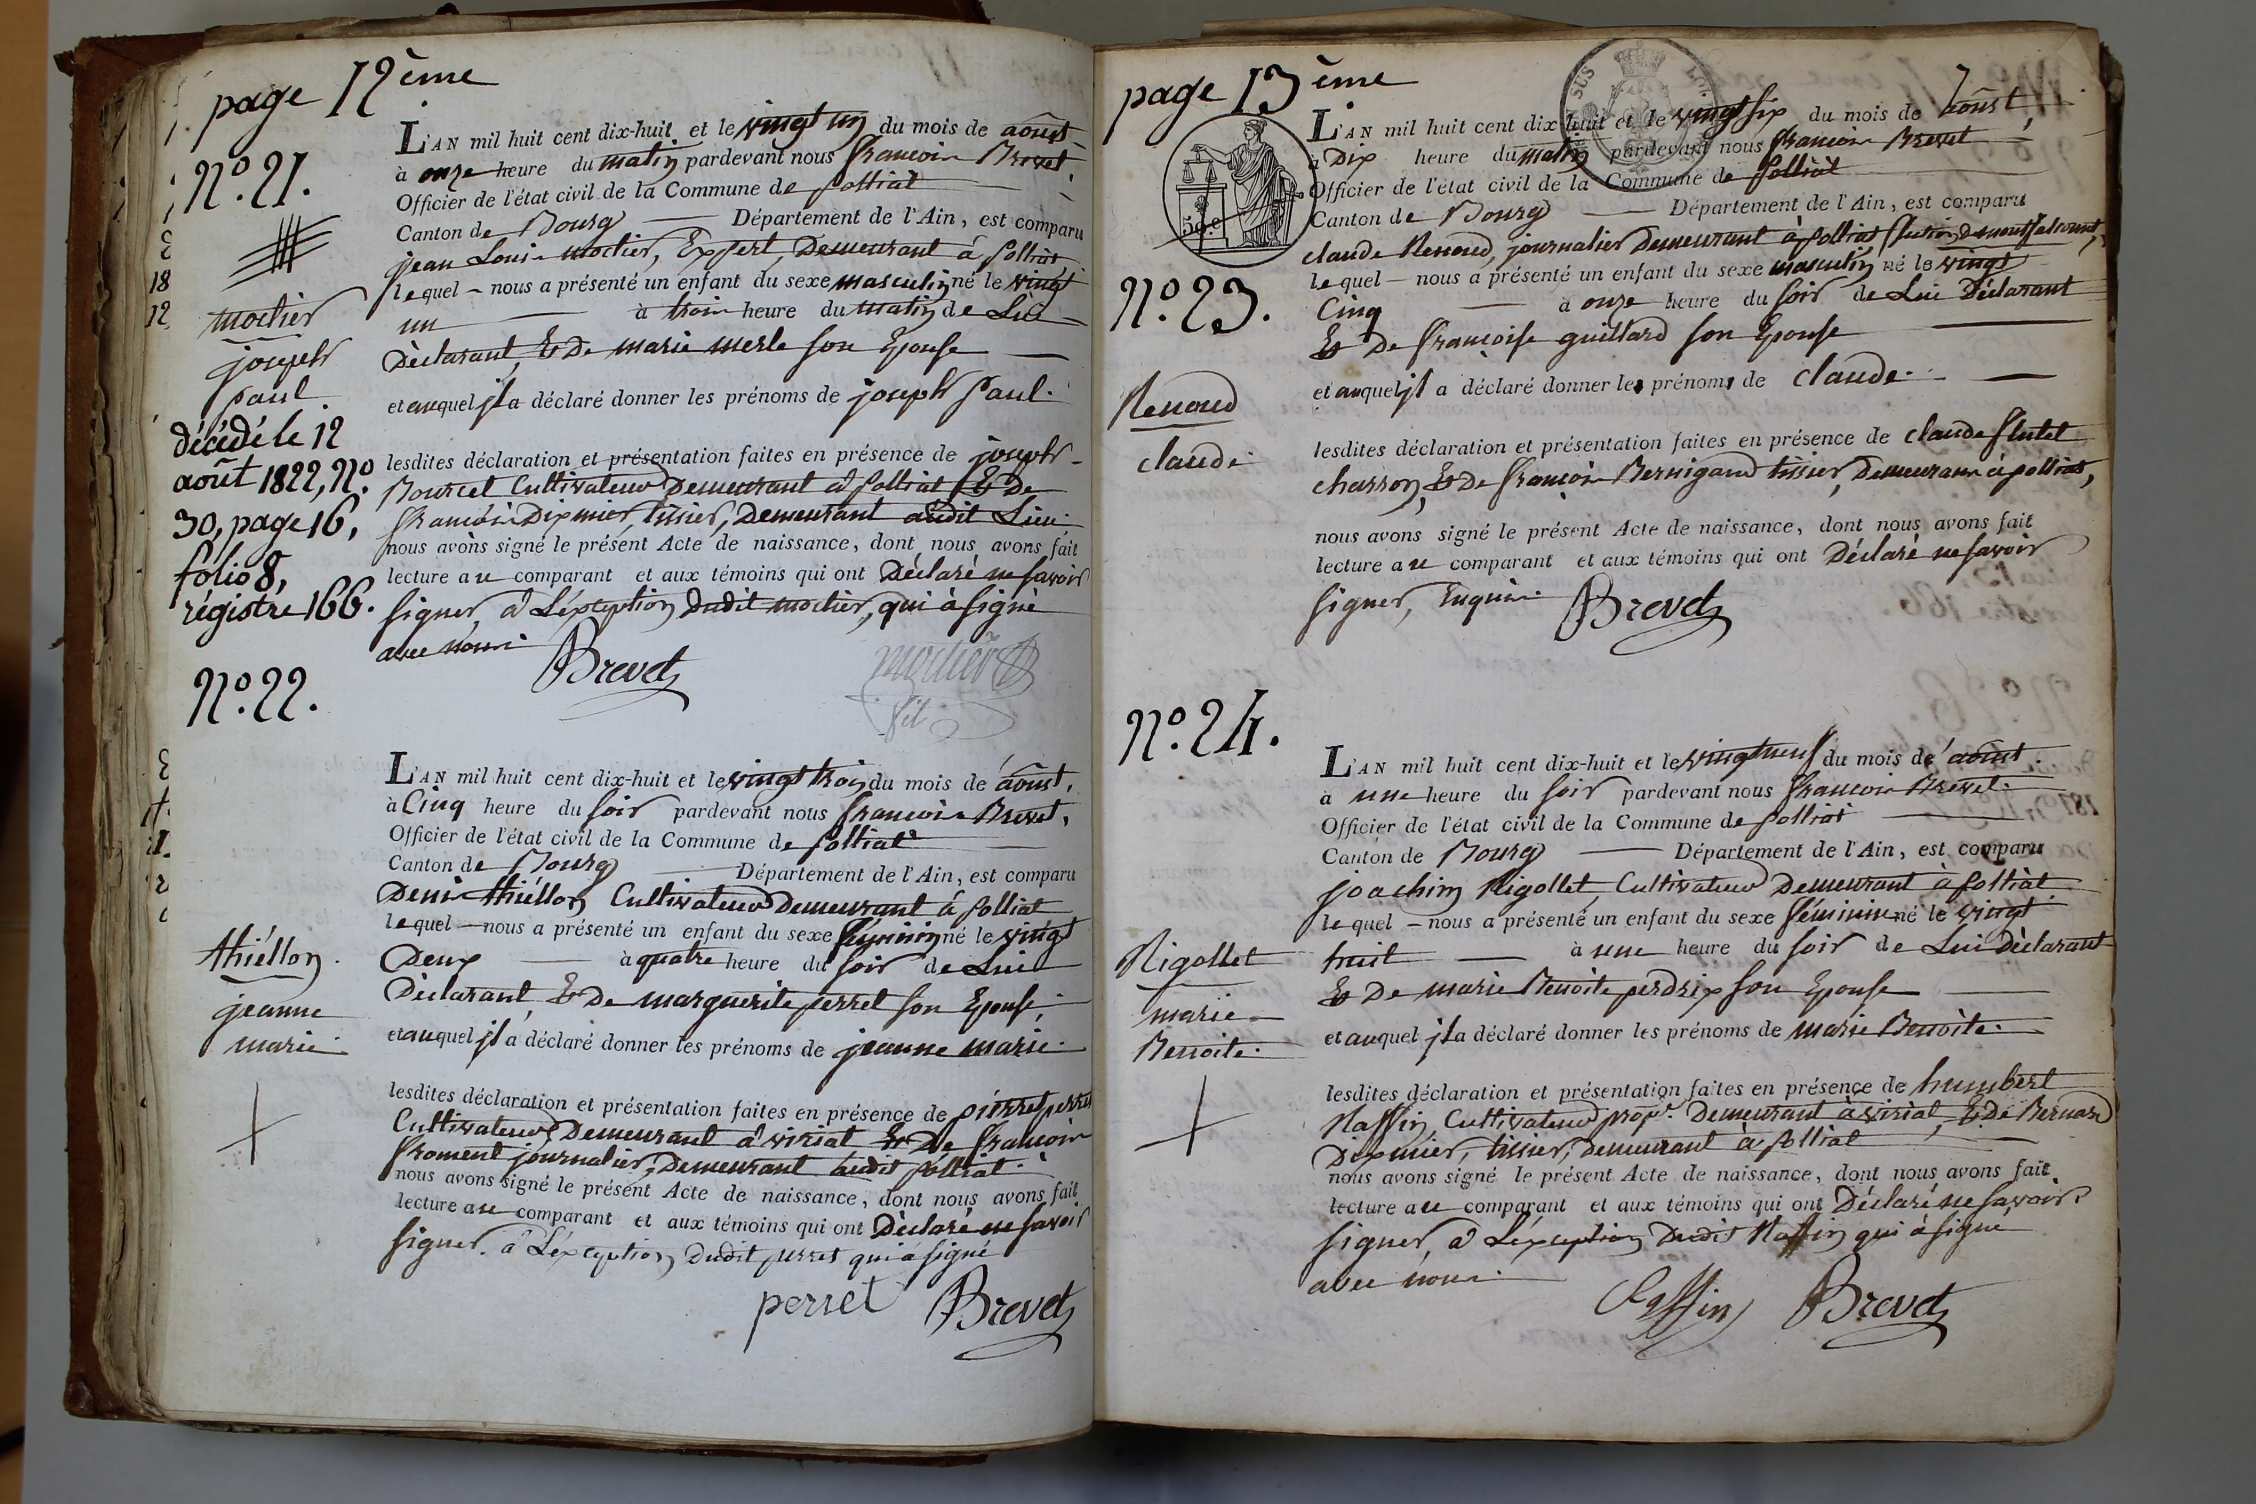 page 12ème
N.º 21.
moctier
joseph
paul.
décédé le 12
août 1822, N.º
30, page 16,
folio 8,
régistre 166.
L'AN mil huit cent dix-huit et le vingt un du mois de aoûst
à onze heure du matin pardevant nous françois Brevet,
Officier de l'état civil de la Commune de polliat
Canton de Bourg Département de l'Ain, est comparu
jean Louis moctier, Expert, Demeurant à polliat
lequel nous a présenté un enfant du sexe masculin né le vingt
un à trois heure du matin de Lui
Déclarant, & De marie merle son Epouse
et auquel jl a déclaré donner les prénoms de joseph paul.
lesdites déclaration et présentation faites en présence de joseph
Bourcet Cultivateur Demeurant à polliat & De
françois Dixmier, tissier, Demeurant audit Lieu.
nous avons signé le présent Acte de naissance, dont nous avons fait
lecture au comparant et aux témoins qui ont Déclaré ne savoir
signer, à L'éxception dudit moctier, qui à signé
avec nous.
Brevet
moctier
fils
N.º 22.
thiéllon.
jeanne
marie.
L'AN mil huit cent dix-huit et le vingt trois du mois de aoûst,
à Cinq heure du soir pardevant nous françois Brevet,
Officier de l'état civil de la Commune de polliat
Canton de Bourg Département de l'Ain, est comparu
Denis thiéllon Cultivateur Demeurant à polliat
lequel nous a présenté un enfant du sexe féminin né le vingt
Deux à quatre heure du soir de Lui
Déclarant, & De marguerite perret son Epouse,
et auquel jl a déclaré donner les prénoms de jeanne marie.
lesdites déclaration et présentation faites en présence de pierre perret
Cultivateur, Demeurant à viriat & De françois
froment journalier, Demeurant audit polliat.
nous avons signé le présent Acte de naissance, dont nous avons fait
lecture au comparant et aux témoins qui ont Déclaré ne savoir
signer. à L'éxception Dudit perret qui à signé
perret Brevet
page 13ème
N.º 23.
Renoud
claude.
L'AN mil huit cent dix huit et le vingt six du mois de aoûst,
à Dix heure du matin pardevant nous françois Brevet,
Officier de l'état civil de la Commune de polliat
Canton de Bourg Département de l'Ain, est comparu
claude Renoud, journalier Demeurant à polliat
lequel nous a présenté un enfant du sexe masculin né le vingt
Cinq à onze heure du soir de Lui Déclarant
& De françoise guillard son Epouse
et auquel jl a déclaré donner les prénoms de claude.
lesdites déclaration et présentation faites en présence de claude flutet
charron, & De françois Bernigaud tissier, Demeurans à polliat,
nous avons signé le présent Acte de naissance, dont nous avons fait
lecture au comparant et aux témoins qui ont Déclaré ne savoir
signer, Enquis.
Brevet
N.º 24.
Rigollet
marie
Benoite.
L'AN mil huit cent dix-huit et le vingt neuf du mois de aoûst.
à une heure du soir pardevant nous françois Brevet.
Officier de l'état civil de la Commune de polliat
Canton de Bourg Département de l'Ain, est comparu
joachim Rigollet, Cultivateur Demeurant à polliat
lequel nous a présenté un enfant du sexe féminin né le vingt
huit à une heure du soir de Lui Déclarant
& De marie Benoite perdrix son Epouse
et auquel jl a déclaré donner les prénoms de marie Benoite.
lesdites déclaration et présentation faites en présence de humbert
Raffin, Cultivateur prop.re Demeurant à viriat, & De Bernard
Dixmier, tissier, Demeurant à polliat
nous avons signé le présent Acte de naissance, dont nous avons fait
lecture au comparant et aux témoins qui ont Déclaré ne savoir
signer, à L'éxception Dudit Raffin qui à signé
avec nous.
Raffin Brevet